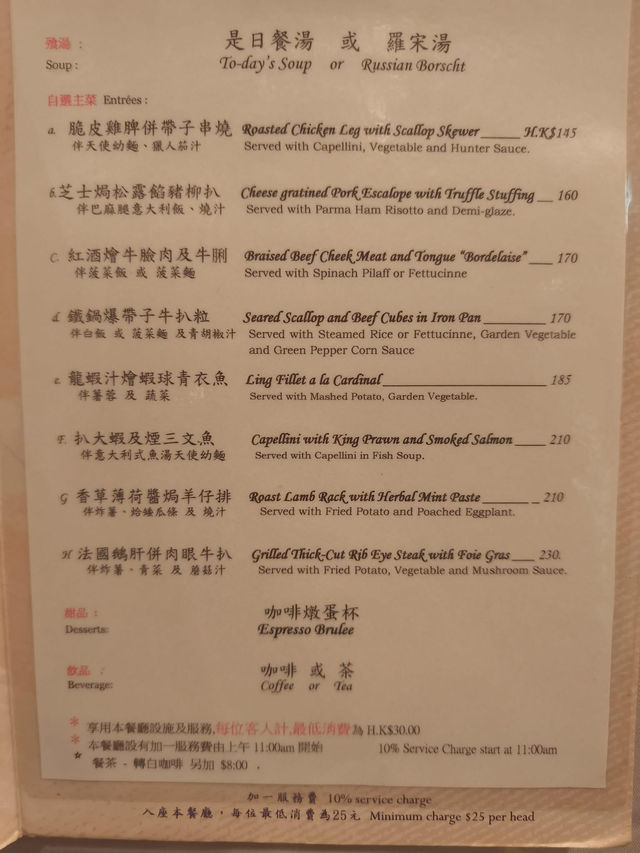 飱湯： 是日餐湯 或 羅宋湯
Soup : To-day's Soup or Russian Borscht
自選主菜 Entrées :
a. 脆皮雞脾併帶子串燒 Roasted Chicken Leg with Scallop Skewer______ H.K$145
伴天使幼麵、獵人茄汁 Served with Capellini, Vegetable and Hunter Sauce.
b.芝士焗松露餡豬柳扒 Cheese gratined Pork Escalope with Truffle Stuffing __ 160
伴巴麻腿意大利飯、燒汁 Served with Parma Ham Risotto and Demi-glaze.
C. 紅酒燴牛臉肉及牛脷 Braised Beef Cheek Meat and Tongue "Bordelaise" ___ 170
伴菠菜飯 或 菠菜麵 Served with Spinach Pilaff or Fettucinne
d. 鐵鍋爆帶子牛扒粒 Seared Scallop and Beef Cubes in Iron Pan ________ 170
伴白飯 或 菠菜麵 及青胡椒汁 Served with Steamed Rice or Fettucinne, Garden Vegetable
and Green Pepper Corn Sauce
e. 龍蝦汁燴蝦球青衣魚 Ling Fillet a la Cardinal_____________________ 185
伴薯蓉 及 蔬菜 Served with Mashed Potato, Garden Vegetable.
F. 扒大蝦及煙三文魚 Capellini with King Prawn and Smoked Salmon ____ 210
伴意大利式魚湯天使幼麵 Served with Capellini in Fish Soup.
G 香草薄荷醬焗羊仔排 Roast Lamb Rack with Herbal Mint Paste _______ _ 210
伴炸薯、蛤蝩瓜條 及 燒汁 Served with Fried Potato and Poached Eggplant.
H 法國鵝肝併肉眼牛扒 Grilled Thick-Cut Rib Eye Steak with Foie Gras ___ 230.
伴炸薯、青菜 及 蘑菇汁 Served with Fried Potato, Vegetable and Mushroom Sauce.
甜品： 咖啡燉蛋杯
Desserts: Espresso Brulee
飲品： 咖啡 或 茶
Beverage: Coffee or Tea
* 享用本餐廳設施及服務,每位客人計,最低消費為 H.K$30.00
* 本餐廳設有加一服務費由上午 11:00am 開始 10% Service Charge start at 11:00am
* 餐茶 - 轉白咖啡 另加 $8:00 .
加一服務費 10% service charge
入座本餐廳，每位最低消費為25元 Minimum charge $25 per head